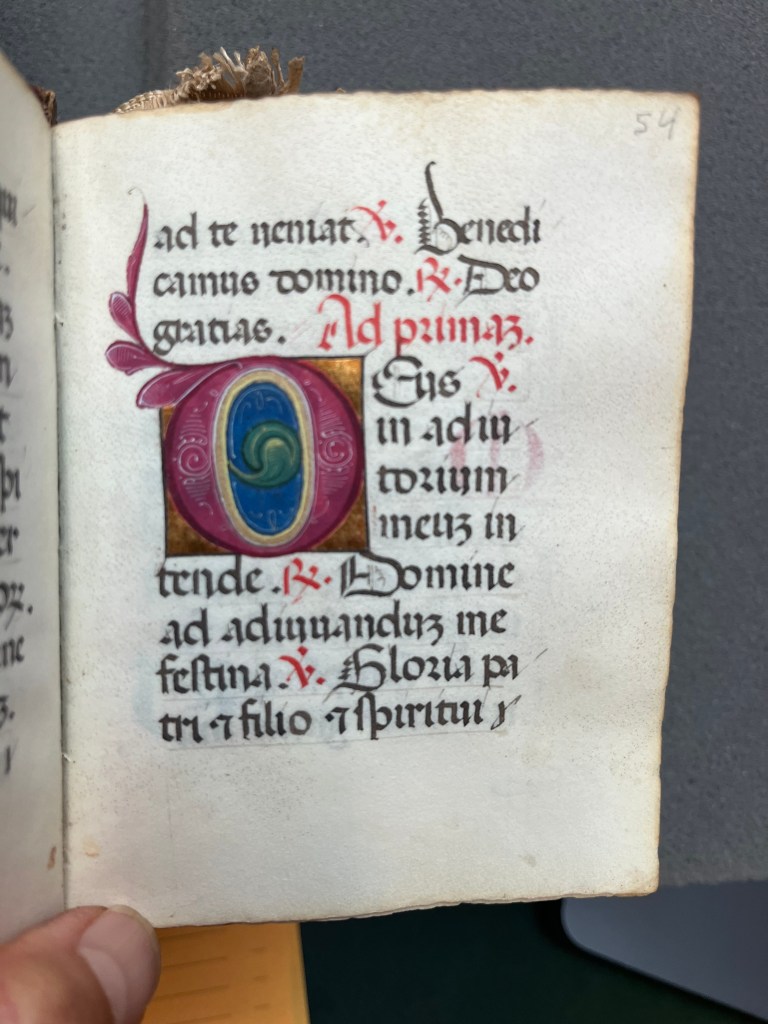 54
ad te ueniat. ℣. Benedi
camus domino. ℟. Deo
gratias. Ad primaʒ.
DEus ℣.
in adiu
torium
meuʒ in
tende. ℟. Domine
ad adiuuanduʒ me
festina. ℣. Gloria pa
tri ⁊ filio ⁊ spiritui